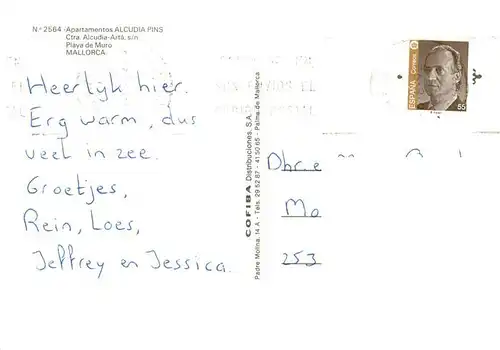 N.º 2564 - Apartamentos ALCUDIA PINS
Ctra. Alcudia-Artá, s/n
Playa de Muro
MALLORCA
Heerlijk hier.
Erg warm, dus
veel in zee.
Groetjes,
Rein, Loes,
Jeffrey en Jessica.
COFIBA Distribuciones, S.A.
Padre Molina, 14 A - Tels. 29 52 87 - 41 50 65 - Palma de Mallorca
ESPAÑA
Correos
55
Dhr.e
Mo
253